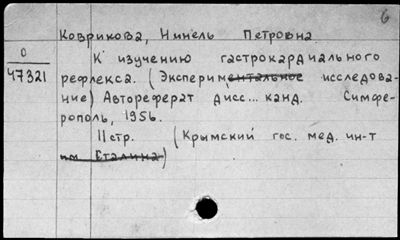 6
Коврикова, Нинель Петровна
0
47321
К изучению гастрокардиального
рефлекса. (Экспериментальное исследова-
ние) Автореферат дисс... канд. Симфе-
рополь, 1956.
11стр. (Крымский гос. мед. ин-т
им Сталина)